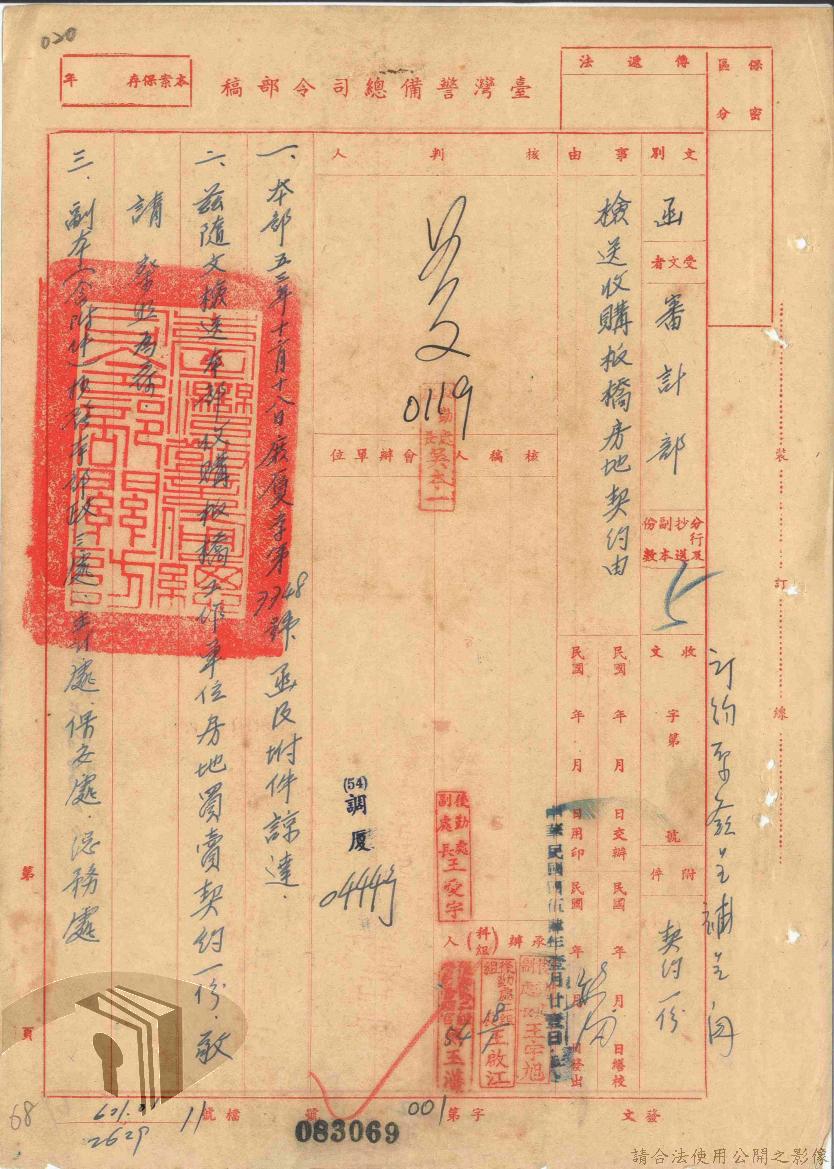 020
保密區分
傳遞法
臺灣警備總司令部稿
本案保存 年
文別 函
受文者 審計部
分行及抄送副本份數 5
收文 字第 號
附件 契約一份
事由 檢送收購板橋房地契約由
民國 年 月 日交辦
民國 年 月 日繕校
民國 年 月 日用印
民國 年 月 日封發出
中華民國 年壹月廿壹日
核判人
0119
核稿人
會辦單位
後勤處副處長王愛宇
承辦(科組)人
王宇旭
後勤處 組 王啟江
18/1
54
(54)調厦
0444
一、本部五三年十二月十八日 厦季第7748號函及附件諒達.
二、茲隨文檢送本部收購板橋工作單位房地買賣契約一份.敬
請 察照為荷.
三、副本(含附件)抄發本部政三處.主計處.保安處.總務處
裝 訂 線
第 頁
發文 字第 001 號
檔號 11
083069
2629
68
請合法使用公開之影像